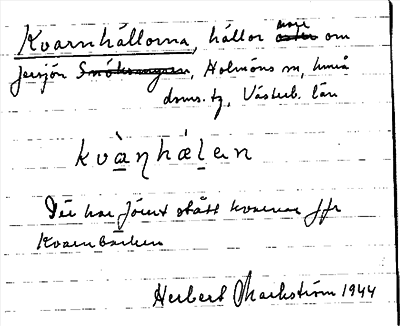 Kvarnhällorna, hällor norr om
Jersjön, Holmöns sn, Umeå
doms. tg, Västerb. län
kvàηhálen
Där har förut stått kvarnar jfr
Kvarnbacken
Herbert Markström 1944